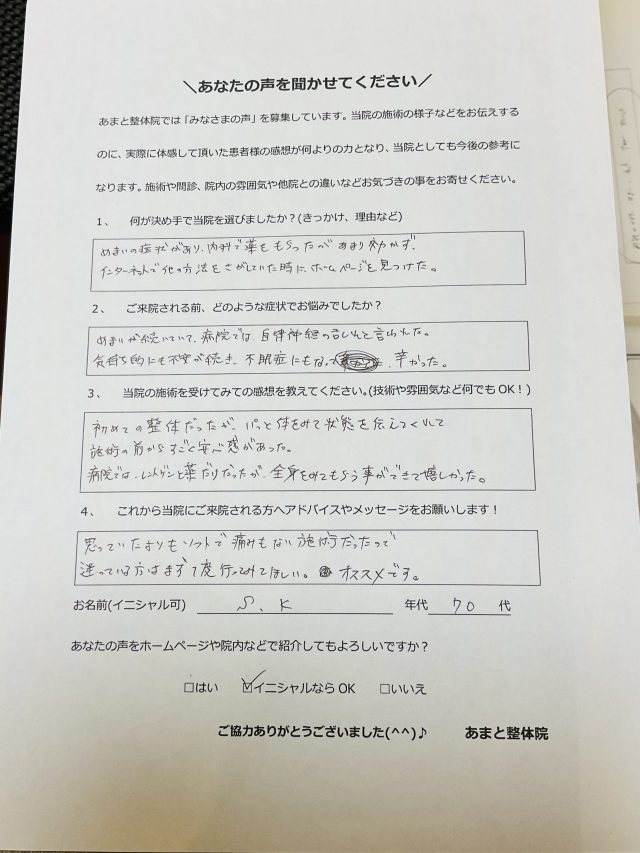 ＼あなたの声を聞かせてください／
あまと整体院では「みなさまの声」を募集しています。当院の施術の様子などをお伝えする
のに、実際に体感して頂いた患者様の感想が何よりの力となり、当院としても今後の参考に
なります。施術や問診、院内の雰囲気や他院との違いなどお気づきの事をお寄せください。
１、 何が決め手で当院を選びましたか？(きっかけ、理由など)
めまいの症状があり、内科で薬をもらったが あまり効かず、
インターネットで他の方法をさがしていた時に、ホームページを見つけた。
２、 ご来院される前、どのような症状でお悩みでしたか？
めまいが続いていて、病院では、自律神経の乱れと言われた。
気持ち的にも不安が続き、不眠症にもなって 、辛かった。
３、 当院の施術を受けてみての感想を教えてください。(技術や雰囲気など何でもOK！)
初めての整体だったが、パッと体をみて状態を伝えてくれて
施術の前からすごく安心感があった。
病院では、レントゲンと薬だけだったが、全身をみてもらう事ができて嬉しかった。
４、 これから当院にご来院される方へアドバイスやメッセージをお願いします！
思っていたよりもソフトで痛みもない施術だったので
迷っている方はまず1度行ってみてほしい。 オススメです。
お名前(イニシャル可) S.K 年代 70 代
あなたの声をホームページや院内などで紹介してもよろしいですか？
□はい ☑イニシャルなら OK □いいえ
ご協力ありがとうございました(^^)♪ あまと整体院